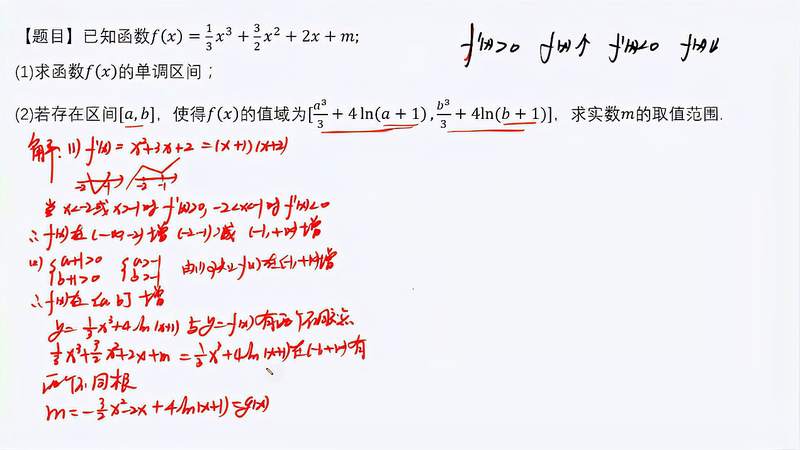 【题目】已知函数f(x)=\frac{1}{3}x³+\frac{3}{2}x²+2x+m;
f'(x)>0 f(x)↑ f'(x)<0 f(x)↓
(1)求函数f(x)的单调区间;
(2)若存在区间[a,b], 使得f(x)的值域为[\frac{a³}{3}+4ln(a+1),\frac{b³}{3}+4ln(b+1)], 求实数m的取值范围.
解:(1) f'(x)=x²+3x+2=(x+1)(x+2)
-2 -1 -2 -1
当x<-2或x>-1时f'(x)>0, -2<x<-1时f'(x)<0
∴f(x)在(-∞,-2)增 (-2,-1)减 (-1,+∞)增
(2) {a+1>0 b+1>0 {a>-1 b>-1 由(1)知f(x)在(-1,+∞)增
∴f(x)在[a,b]增
y=\frac{1}{3}x³+4ln(x+1)与y=f(x)有两个不同交点
\frac{1}{3}x³+\frac{3}{2}x²+2x+m=\frac{1}{3}x³+4ln(x+1)在(-1,+∞)有
两个不同根
m=-\frac{3}{2}x²-2x+4ln(x+1)=g(x)